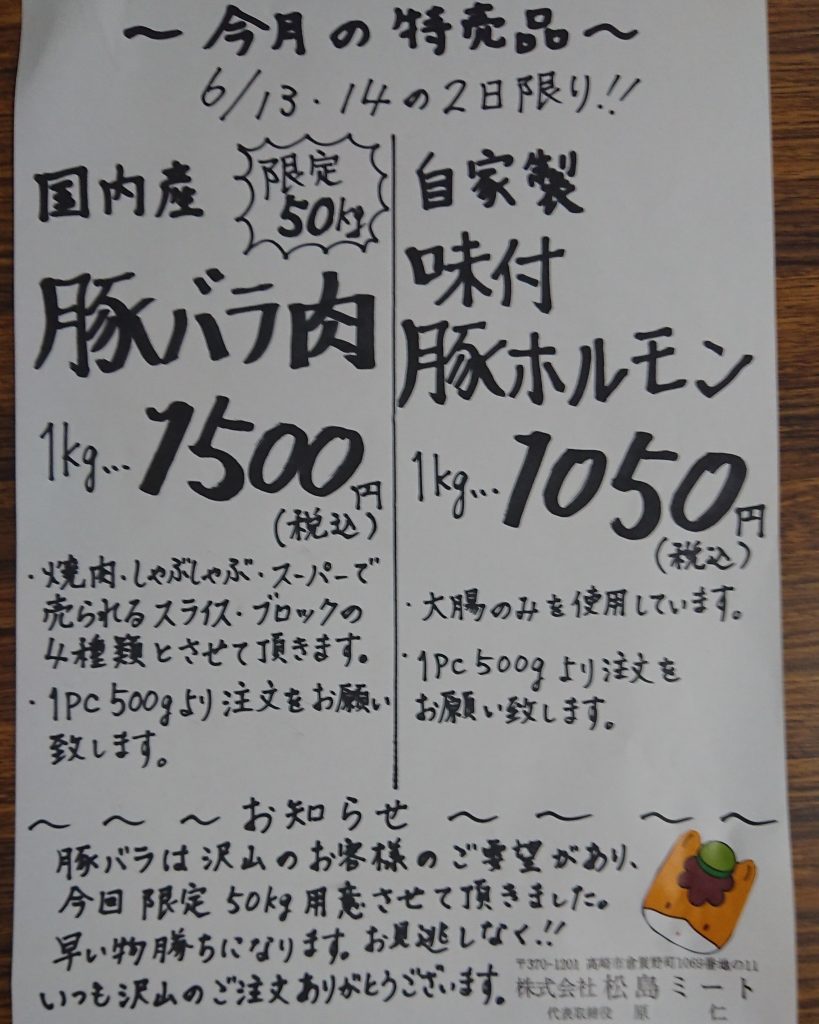 ～今月の特売品～
6/13・14の2日限り!!
国内産
限定
50kg
豚バラ肉
1kg…1500円
(税込)
・焼肉・しゃぶしゃぶ・スーパーで
売られるスライス・ブロックの
4種類とさせて頂きます。
・1PC 500gより注文をお願い
致します。
自家製
味付
豚ホルモン
1kg…1050円
(税込)
・大腸のみを使用しています。
・1PC 500gより注文を
お願い致します。
～～～お知らせ～～～～
豚バラは沢山のお客様のご要望があり、
今回限定50kg用意させて頂きました。
早い物勝ちになります。お見逃しなく!!
いつも沢山のご注文ありがとうございます。
〒370-1201 高崎市倉賀野町1069番地の11
株式会社 松島ミート
代表取締役 原 仁